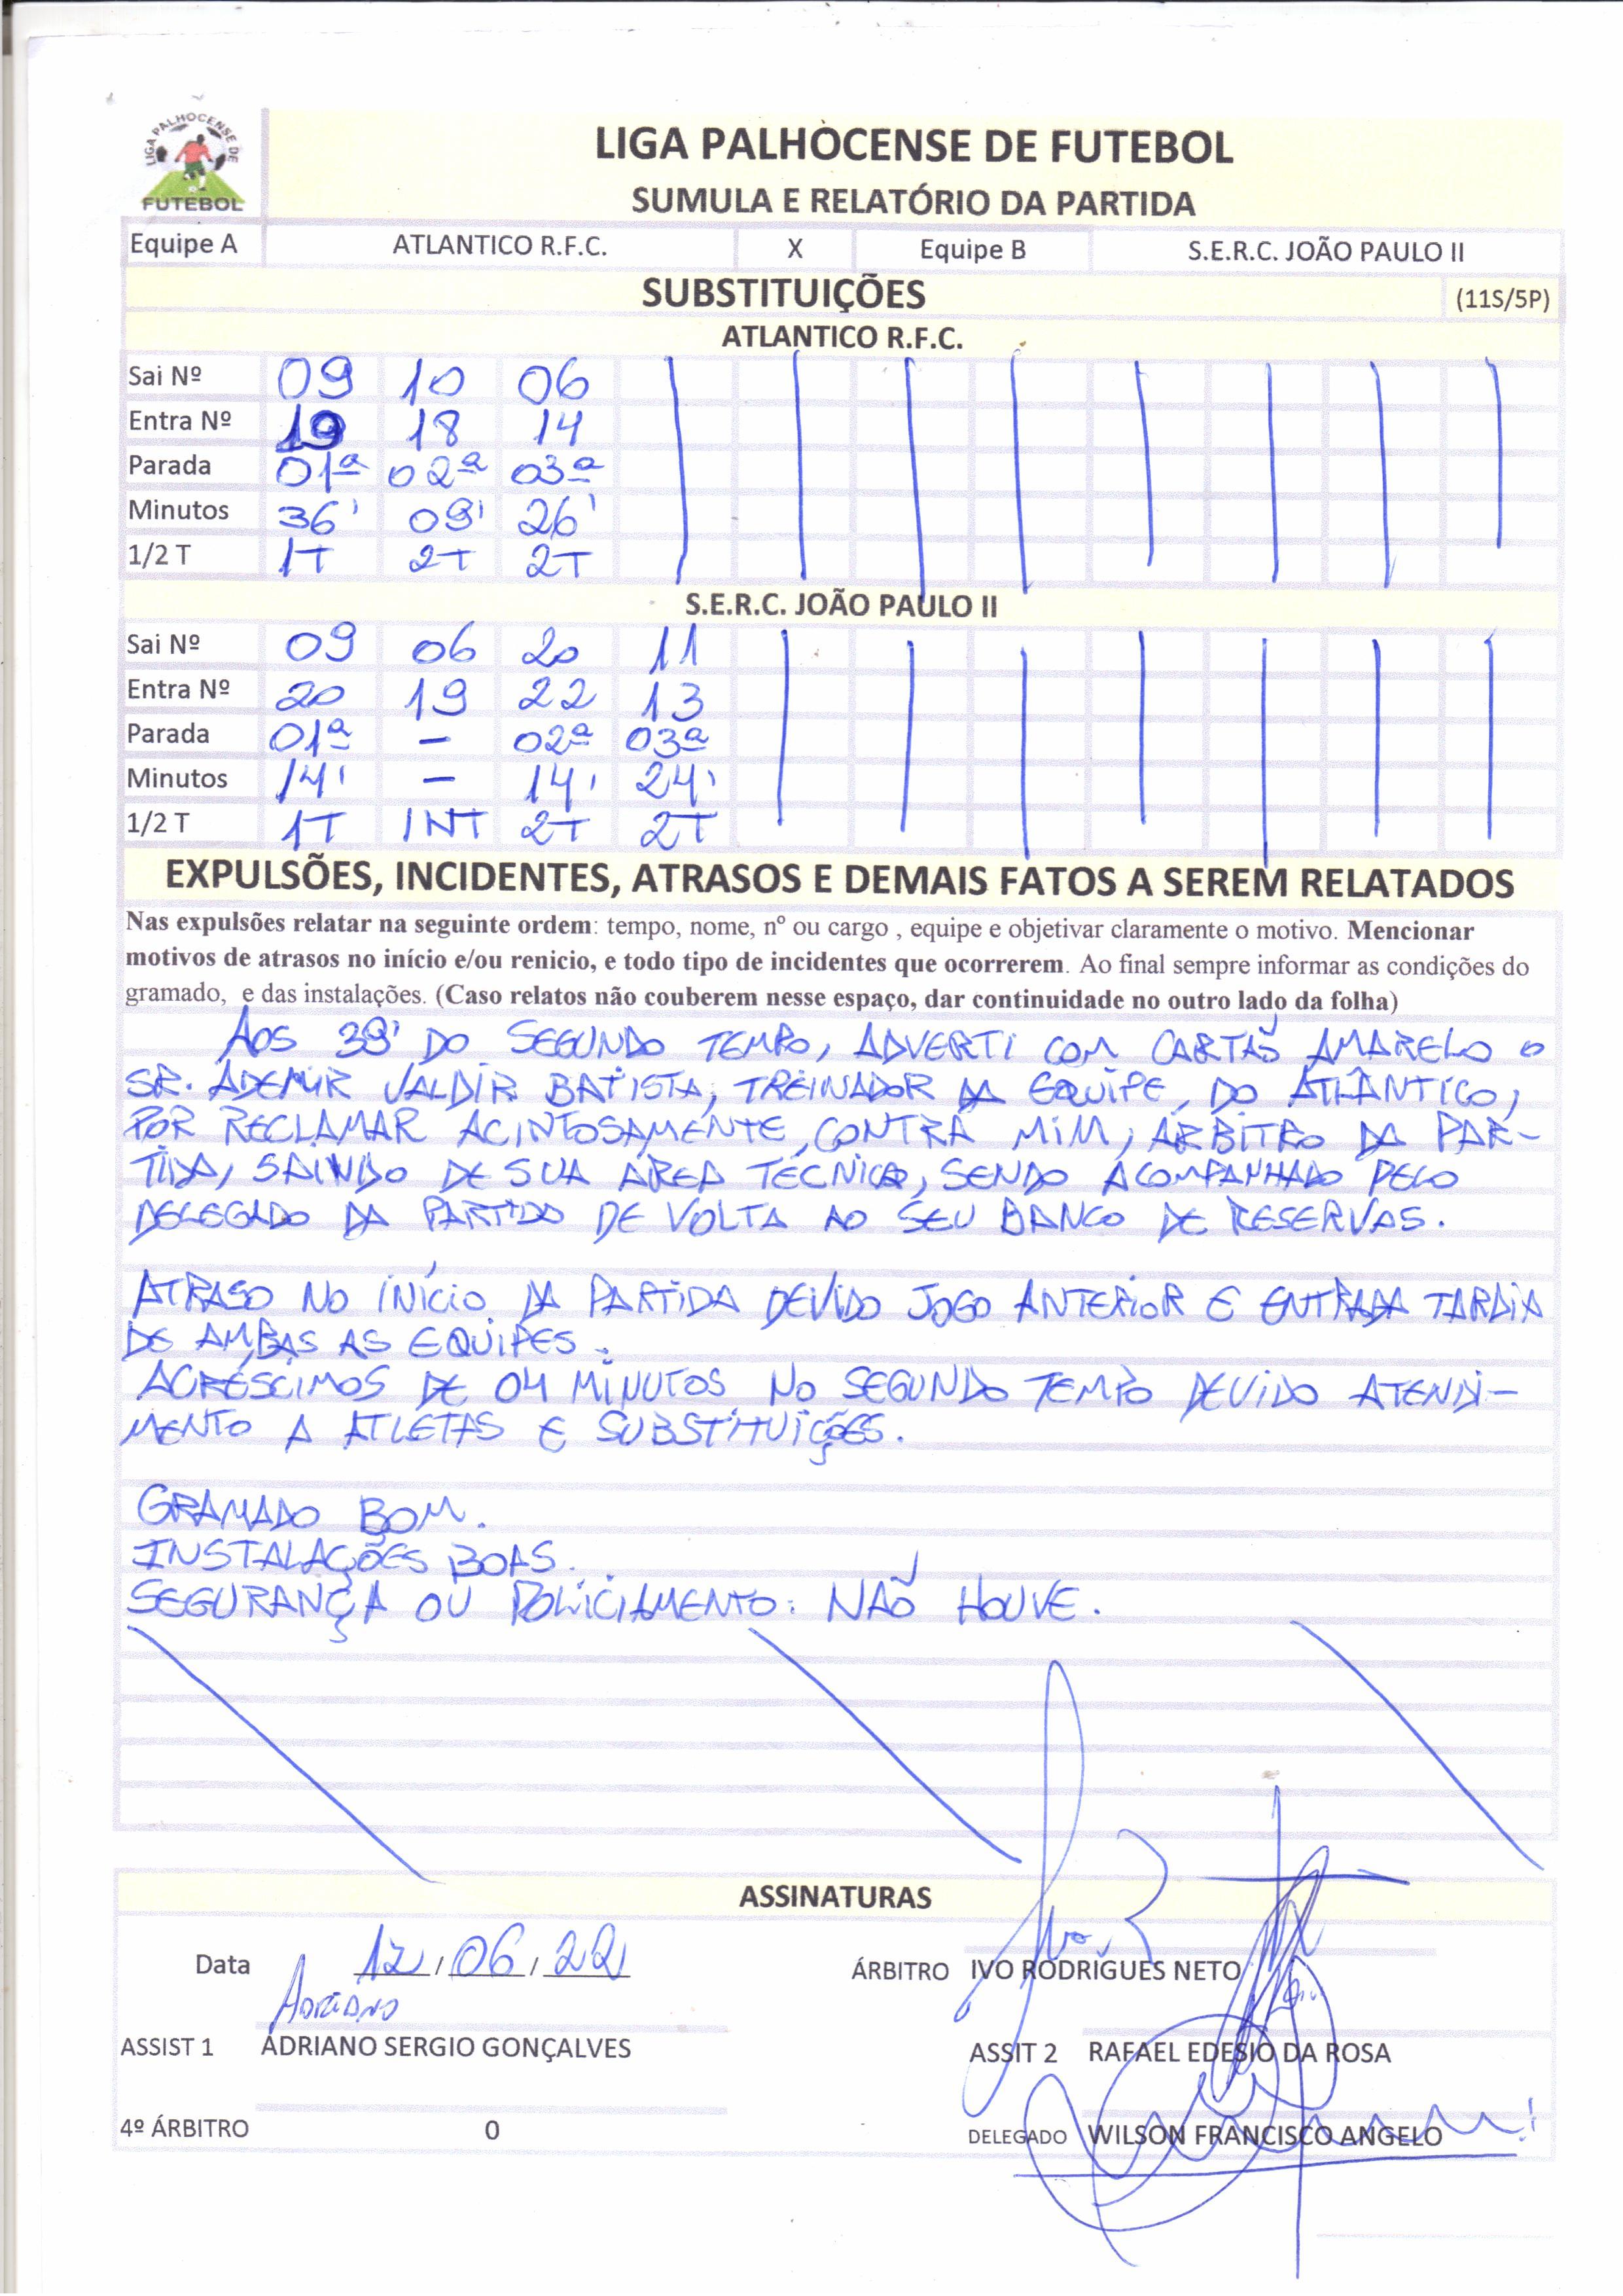 LIGA PALHOCENSE DE FUTEBOL
LIGA PALHOCENSE DE FUTEBOL
SUMULA E RELATÓRIO DA PARTIDA
Equipe A ATLANTICO R.F.C. X Equipe B S.E.R.C. JOÃO PAULO II
SUBSTITUIÇÕES (11S/5P)
ATLANTICO R.F.C.
Sai Nº 09 10 06
Entra Nº 19 18 14
Parada 01ª 02ª 03ª
Minutos 36' 09' 26'
1/2 T 1T 2T 2T
S.E.R.C. JOÃO PAULO II
Sai Nº 09 06 20 11
Entra Nº 20 19 22 13
Parada 01ª - 02ª 03ª
Minutos 14' - 14' 24'
1/2 T 1T INT 2T 2T
EXPULSÕES, INCIDENTES, ATRASOS E DEMAIS FATOS A SEREM RELATADOS
Nas expulsões relatar na seguinte ordem: tempo, nome, nº ou cargo , equipe e objetivar claramente o motivo. Mencionar
motivos de atrasos no início e/ou renicio, e todo tipo de incidentes que ocorrerem. Ao final sempre informar as condições do
gramado, e das instalações. (Caso relatos não couberem nesse espaço, dar continuidade no outro lado da folha)
AOS DO SEGUNDO TEMPO, ADVERTI COM CARTÃO AMARELO O
SR. ADEMIR VALDIR BATISTA, TREINADOR DA EQUIPE, DO ATLÂNTICO,
POR RECLAMAR ACINTOSAMENTE, CONTRA MIM, ÁRBITRO DA PAR-
TIDA, SAINDO DE SUA ÁREA TÉCNICA, SENDO ACOMPANHADO PELO
DELEGADO DA PARTIDA DE VOLTA AO SEU BANCO DE RESERVAS.
ATRASO NO INÍCIO DA PARTIDA DEVIDO JOGO ANTERIOR E ENTRADA TARDIA
DE AMBAS AS EQUIPES.
ACRÉSCIMOS DE 04 MINUTOS NO SEGUNDO TEMPO DEVIDO ATENDI-
MENTO A ATLETAS E SUBSTITUIÇÕES.
GRAMADO BOM.
INSTALAÇÕES BOAS.
SEGURANÇA OU POLICIAMENTO: NÃO HOUVE.
ASSINATURAS
Data 12/06/22 ÁRBITRO IVO RODRIGUES NETO
ADRIANO
ASSIST 1 ADRIANO SERGIO GONÇALVES ASSIT 2 RAFAEL EDESIO DA ROSA
4º ÁRBITRO 0 DELEGADO WILSON FRANCISCO ANGELO